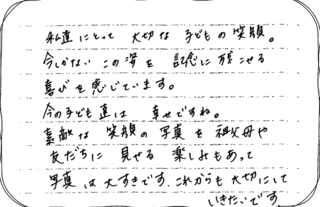 私達にとって 大切な 子どもの 笑顔。
今しかない この 姿を 記憶に 残こせる
喜びを 感じています。
今の子ども達は 幸せですね。
素敵な 笑顔の 写真を 祖父母や
友だちに 見せる 楽しみもあって
写真は大すきです。これからも 大切にして
いきたいです